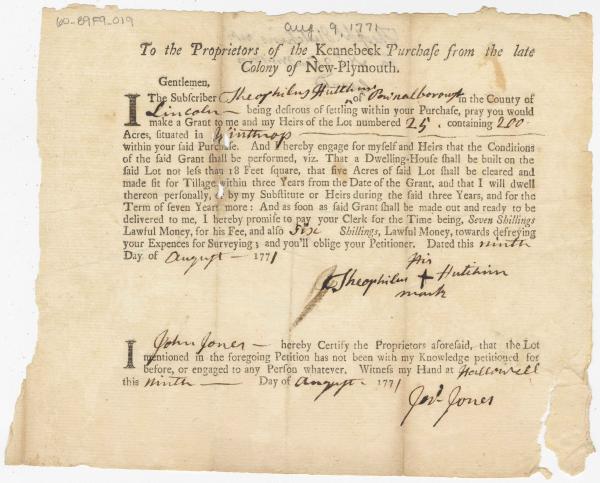 60-89F9-019
Aug. 9, 1771
To the Proprietors of the Kennebeck Purchase from the late
Colony of New-Plymouth.
Gentlemen,
I The Subscriber Theophilus Hutchins of Pownalborough in the County of
Lincoln — being desirous of settling within your Purchase, pray you would
make a Grant to me and my Heirs of the Lot numbered 25. containing 200
Acres, situated in Winthrop
within your said Purchase. And I hereby engage for myself and Heirs that the Conditions
of the said Grant shall be performed, viz. That a Dwelling-House shall be built on the
said Lot not less than 18 Feet square, that five Acres of said Lot shall be cleared and
made fit for Tillage within three Years from the Date of the Grant, and that I will dwell
thereon personally, or by my Substitute or Heirs during the said three Years, and for the
Term of seven Years more: And as soon as said Grant shall be made out and ready to be
delivered to me, I hereby promise to pay your Clerk for the Time being, Seven Shillings
Lawful Money, for his Fee, and also Six Shillings, Lawful Money, towards defreying
your Expences for Surveying; and you'll oblige your Petitioner. Dated this ninth
Day of August 1771
His
Theophilus + Hutchins
mark
I John Jones — hereby Certify the Proprietors aforesaid, that the Lot
mentioned in the foregoing Petition has not been with my Knowledge petitioned for
before, or engaged to any Person whatever. Witness my Hand at Hallowell
this ninth — Day of August — 1771
Jones